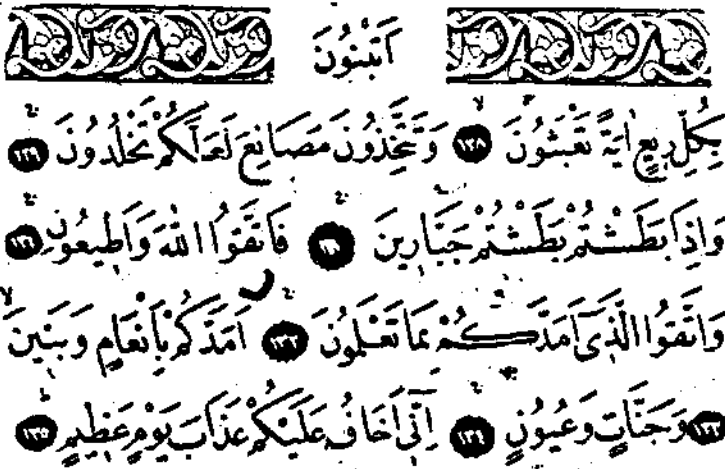 اَتَبْنُونَ
بِكُلِّ رِيعٍ اٰيَةً تَعْبَثُونَ ﴿١٢٨﴾ وَتَتَّخِذُونَ مَصَانِعَ لَعَلَّكُمْ تَخْلُدُونَ ﴿١٢٩﴾
وَاِذَا بَطَشْتُمْ بَطَشْتُمْ جَبَّارِينَ ﴿١٣٠﴾ فَاتَّقُوا اللّٰهَ وَاَطِيعُونِ ﴿١٣١﴾
وَاتَّقُوا الَّذِٓى اَمَدَّكُمْ بِمَا تَعْلَمُونَ ﴿١٣٢﴾ اَمَدَّكُمْ بِاَنْعَامٍ وَبَنِينَ
﴿١٣٣﴾ وَجَنَّاتٍ وَعُيُونٍ ﴿١٣٤﴾ اِنِّٓى اَخَافُ عَلَيْكُمْ عَذَابَ يَوْمٍ عَظِيمٍ ﴿١٣٥﴾